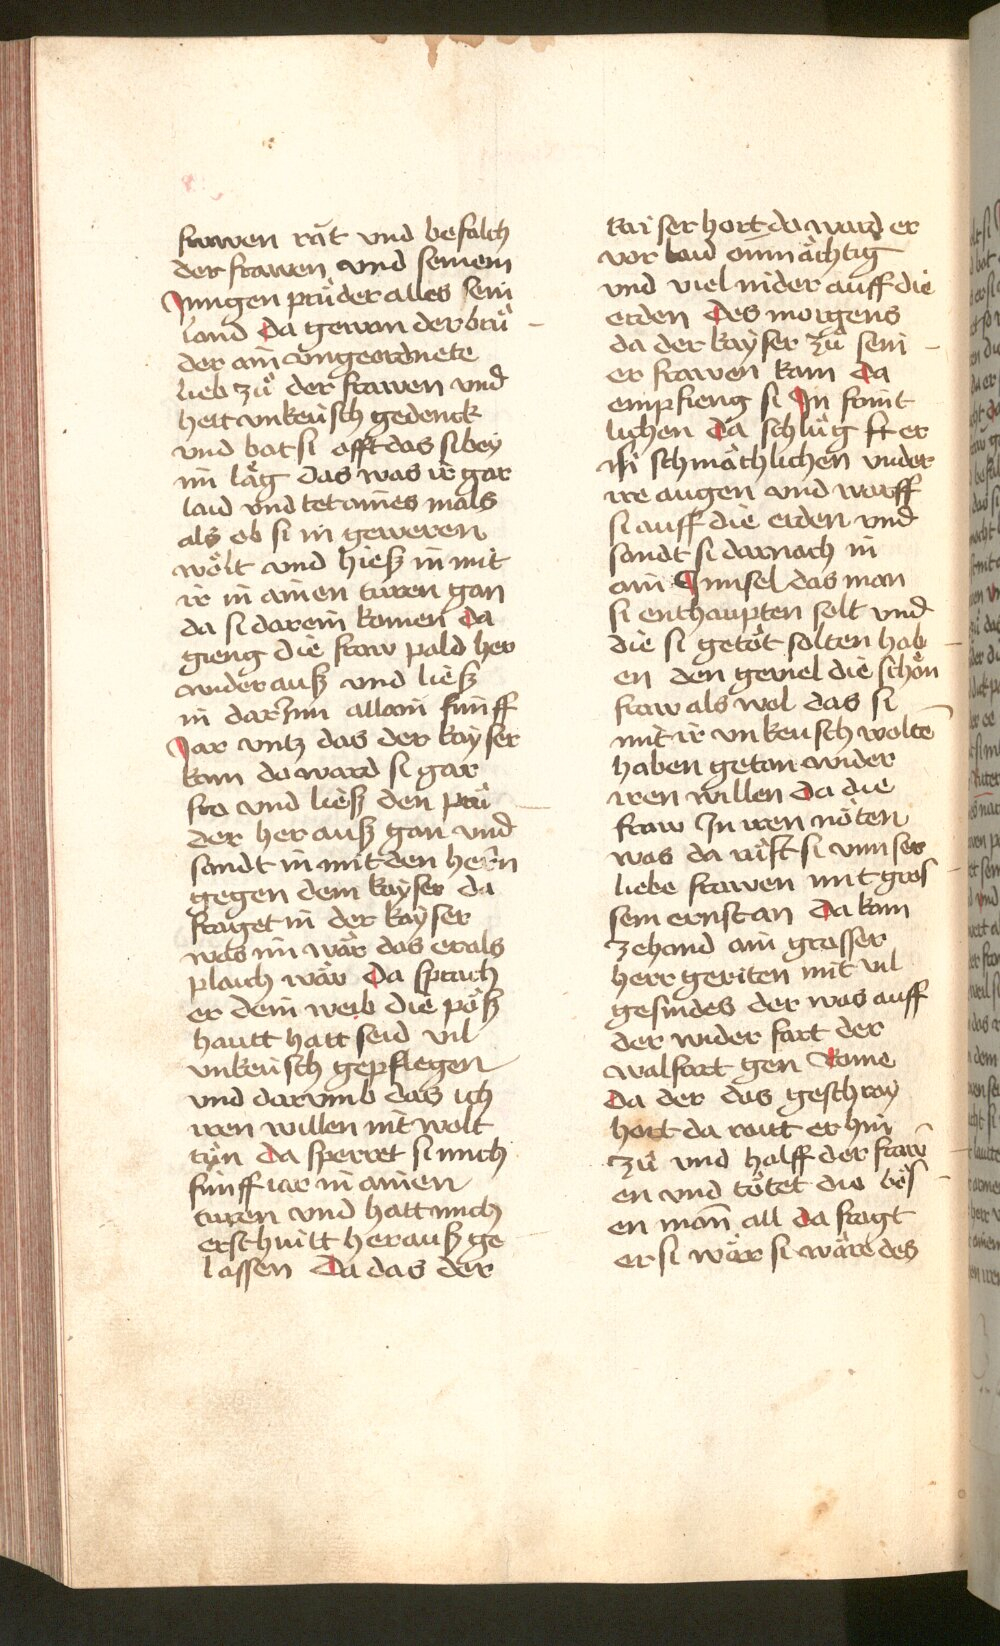 frawen rät vnd befalch
der frawen vnd seinem
Jungen prüder alles sein
land Da gewan der brü
der ain vngeordnete
lieb zů der frawen vnd
hett vnkeusch gedenck
vnd bat si offt das si bey
im läg das was ir gar
laid vnd tet aines mals
als ob si in geweren
wölt vnd hiesz in mit
ir in ainen turen gan
da si darein komen Da
gieng die fraw pald her
wider ausz vnd liesz
in dar Inn allain fünff
Jar vntz das der kayser
kam da ward si gar
fro vnd liesz den prü
der her ausz gan vnd
sandt in mit den herrn
gegen dem kayser da
fraget in der kayser
was im wär das er als
plaich wär Da sprach
er dein weib die pösz
hautt hatt seid vil
vnkeusch gepflegen
vnd darvmb das ich
iren willen nit wolt
tün Da sperret si mich
fünff iar in ainen
turen vnd hatt mich
erst huitt her ausz ge
lassen Da das der
kaiser hort da ward er
vor laid onmächtig
vnd viel nider auff die
erden Des morgens
da der kayser zů sein
er frawen kam Da
empfieng si In frint
lichen Da schlüg er
si schmächlichen vnder
ire augen vnd warff
si auff die erden vnd
sandt si darnach in
ain Jnnsel das man
si enthaupten solt vnd
die si getöt solten hab
en den geuiel die schön
fraw als wol das si
mit ir vnkeusch wolten
haben getan wider
iren willen Da die
fraw In iren nöten
was da rüft si vnnser
liebe frawen mit gros
sem ernst an Da kam
zehand ain grosser
herr geriten mit vil
gesindes der was auff
der wider fart der
walfart gen Rome
Da der das geschray
hort da raitt er hin
zů vnd halff der fraw
en vnd tötet die bös
en man̄ all Da fragt
er si wär si wäre des